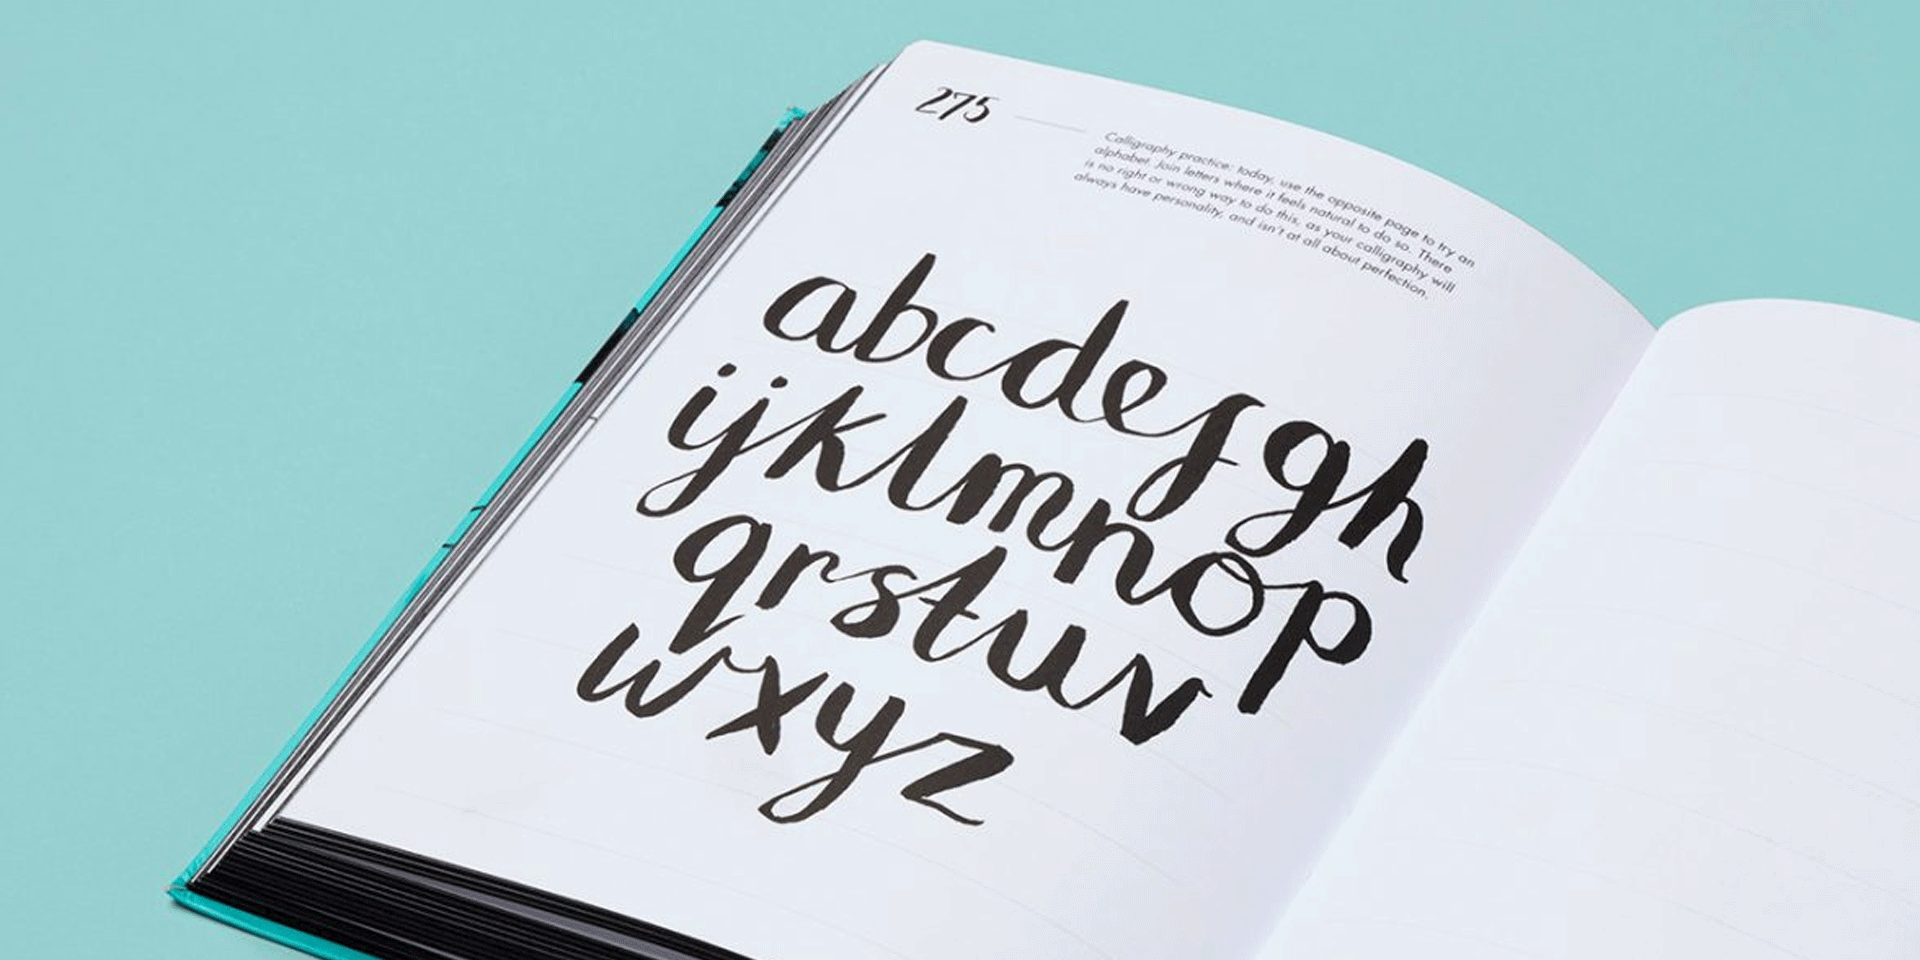 275
Calligraphy practice: today, use the opposite page to try an
alphabet. Join letters where it feels natural to do so. There
is no right or wrong way to do this, as your calligraphy will
always have personality, and isn't at all about perfection.
abcdefgh
ijklmnop
qrstuv
wxyz